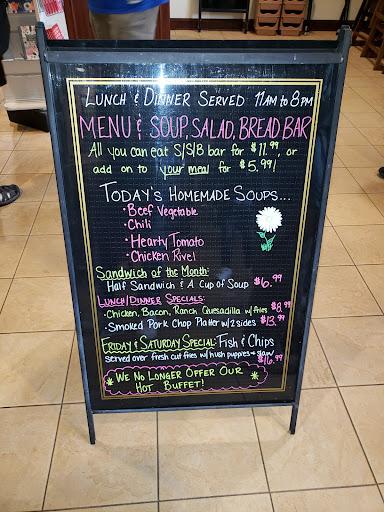 LUNCH & DINNER SERVED 11AM TO 8PM
MENU & SOUP, SALAD, BREAD BAR
All you can eat S/S/B bar for $11.99, or
add on to your meal for $5.99!
TODAY'S HOMEMADE SOUPS...
• Beef Vegetable
• Chili
• Hearty Tomato
• Chicken Rivel
Sandwich of the Month:
Half Sandwich & A Cup of Soup $6.99
LUNCH/DINNER SPECIALS:
• Chicken, Bacon, Ranch Quesadilla w/ fries $8.99
• Smoked Pork Chop Platter w/ 2 sides $13.99
FRIDAY & SATURDAY SPECIAL: Fish & Chips
served over fresh cut fries w/ hush puppies + slaw
$16.99
* WE NO LONGER OFFER OUR
HOT BUFFET! *